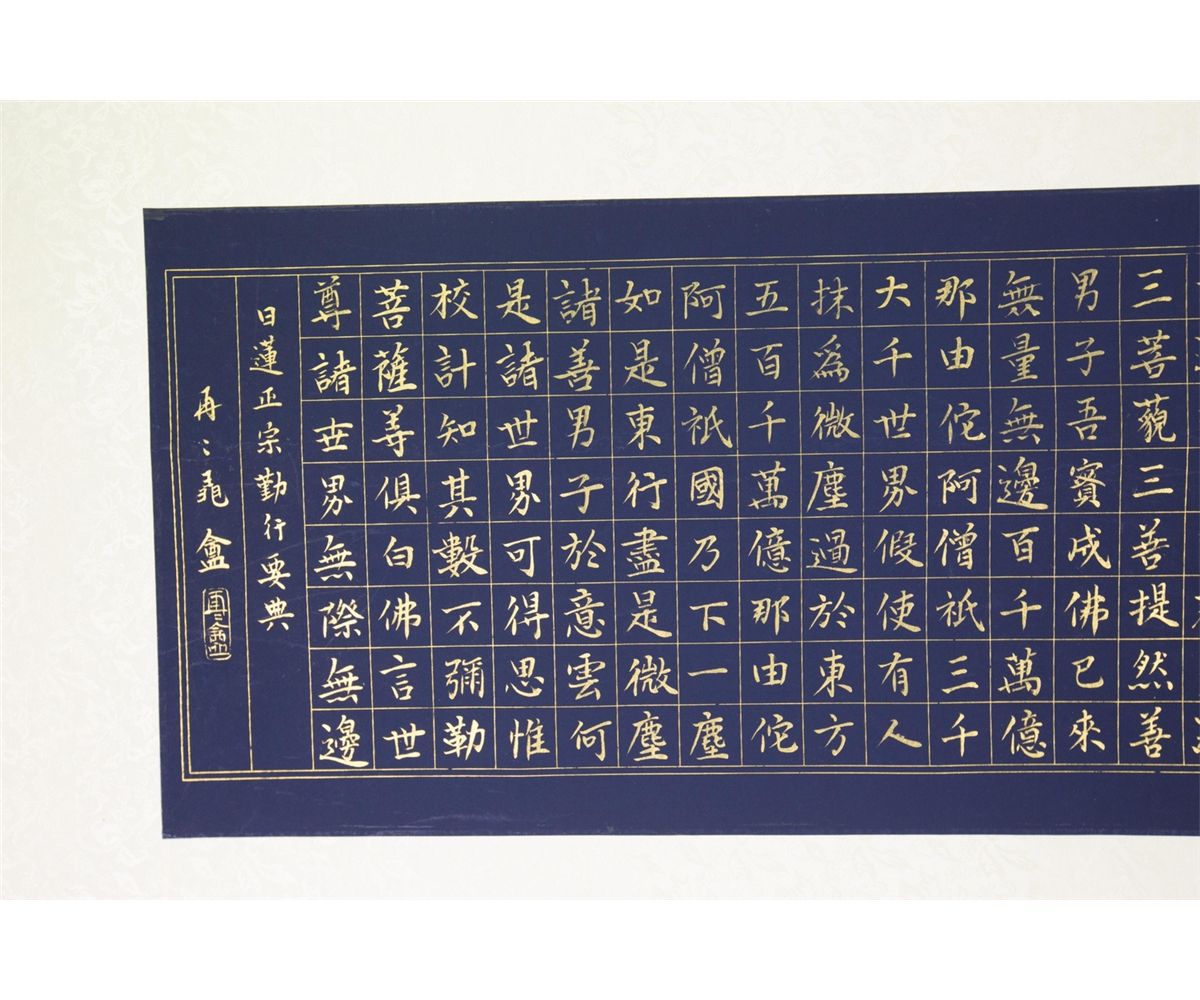 三菩藐三菩提然善
男子吾實成佛已來
無量無邊百千萬億
那由佗阿僧祇三千
大千世界假使有人
抹為微塵過於東方
五百千萬億那由佗
阿僧祇國乃下一塵
如是東行盡是微塵
諸善男子於意雲何
是諸世界可得思惟
校計知其數不彌勒
菩薩等俱白佛言世
尊諸世界無際無邊
日蓮正宗勤行要典
再〻 盦